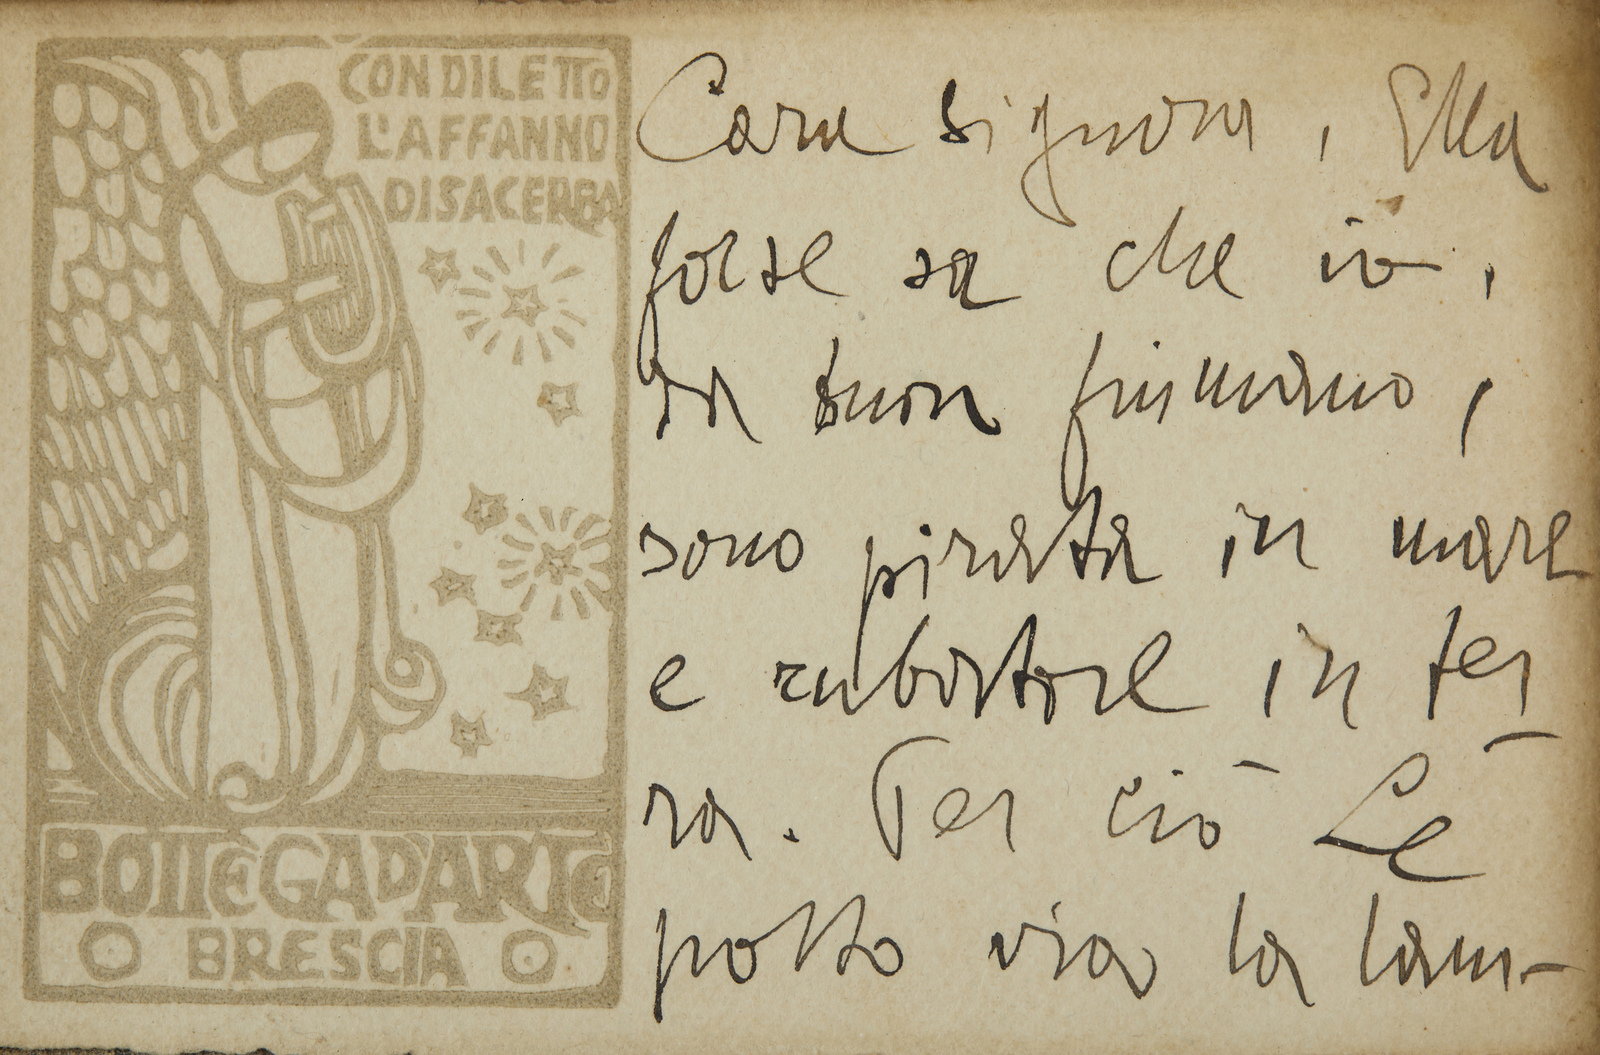 CON DILETTO
L'AFFANNO
DISACERBA
BOTTEGA D'ARTE
BRESCIA
Cara signora, Ella
forse sa che io,
da buon fiumano,
sono pirata in mare
e rubatore in ter-
ra. Per ciò Le
porto via la lam-